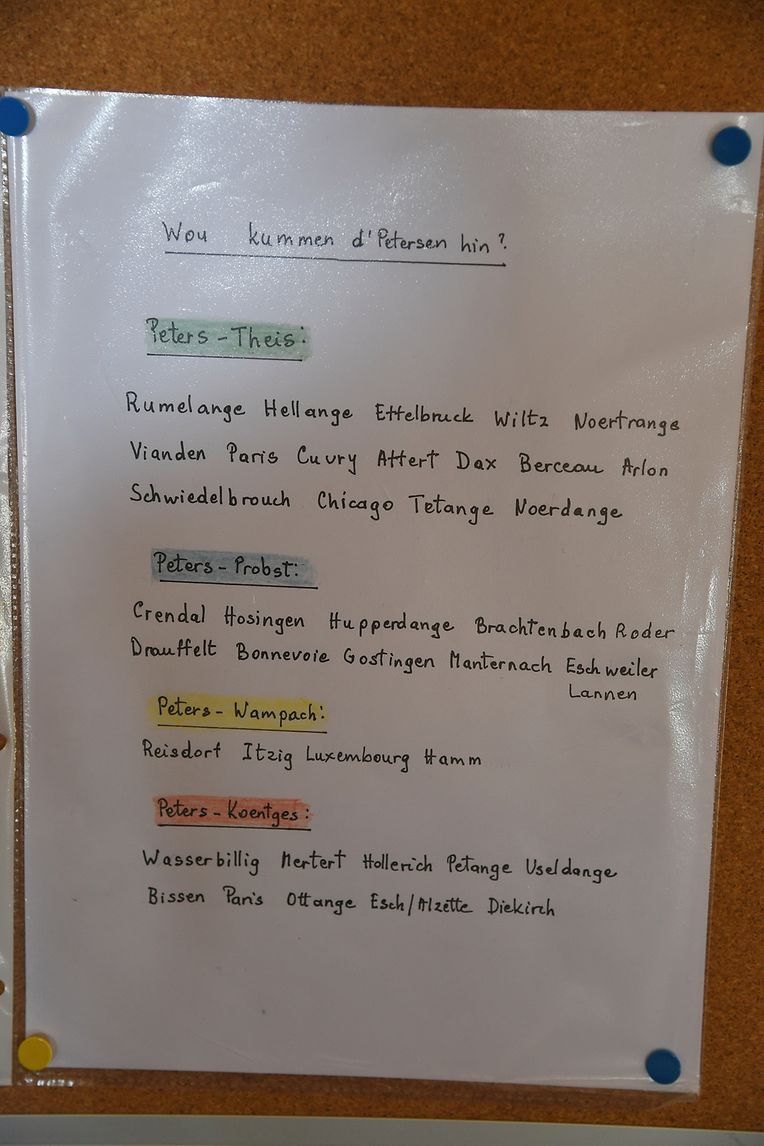 Wou kummen d'Petersen hin?
Peters - Theis:
Rumelange Hellange Ettelbruck Wiltz Noertrange
Vianden Paris Cuvry Attert Dax Berceau Arlon
Schwiedelbrouch Chicago Tetange Noerdange
Peters - Probst:
Crendal Hosingen Hupperdange Brachtenbach Roder
Drauffelt Bonnevoie Gostingen Manternach Eschweiler
Lannen
Peters - Wampach:
Reisdorf Itzig Luxembourg Hamm
Peters - Koentges:
Wasserbillig Mertert Hollerich Petange Useldange
Bissen Paris Ottange Esch/Alzette Diekirch